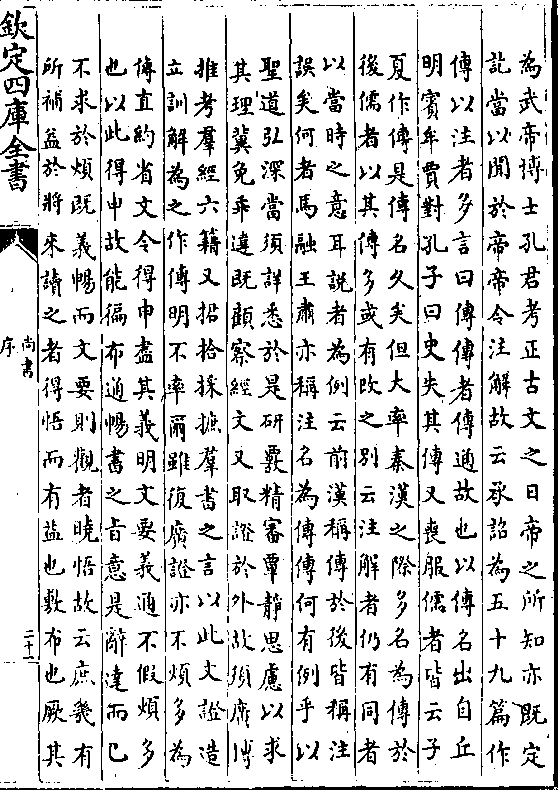 為武帝博士孔君考正古文之日帝之所知亦既定
訖當以聞於帝帝令注解故云承詔為五十九篇作
傳以注者多言曰傳傳者傳通故也以傳名出自丘
明賓牟賈對孔子曰史失其傳又喪服儒者皆云子
夏作傳是傳名久矣但大率秦漢之際多名為傳於
後儒者以其傳多或有改之別云注解者仍有同者
以當時之意耳說者為例云前漢稱傳於後皆稱注
誤矣何者馬融王肅亦稱注名為傳傳何有例乎以
聖道弘深當須詳悉於是研覈精審覃靜思慮以求
其理冀免乖違既顧察經文又取證於外故須廣博
推考羣經六籍又招拾採摭羣書之言以此文證造
立訓解為之作傳明不率爾雖復廣證亦不煩多為
傳直約省文令得申盡其義明文要義通不假煩多
也以此得申故能徧布通暢書之旨意是辭達而已
不求於煩既義暢而文要則觀者曉悟故云庶幾有
所補益於將來讀之者得悟而有益也敷布也厥其
欽定四庫全書
尚書
序
二十一